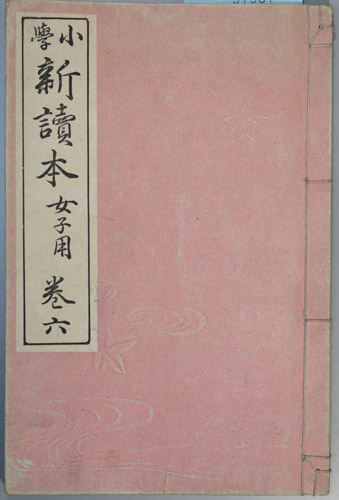 小學新讀本女子用卷六